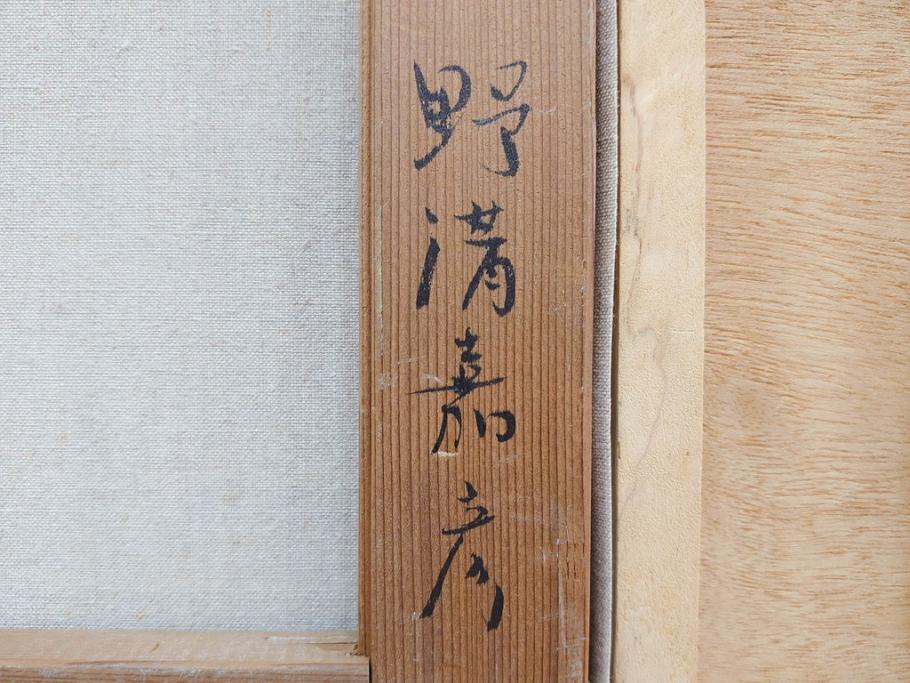 野溝嘉彦